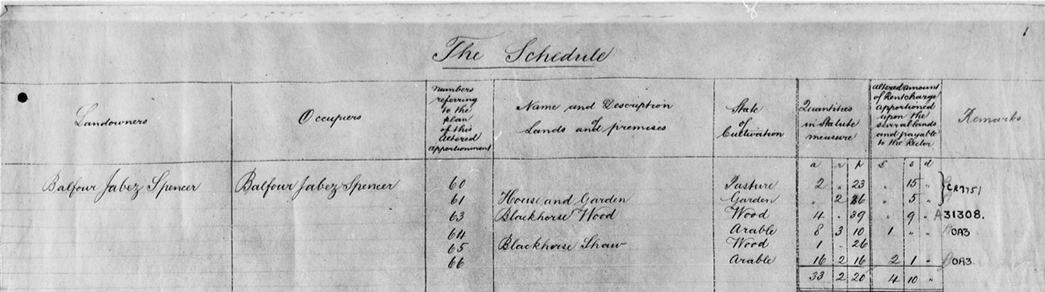 1
The Schedule
Landowners
Occupiers
Numbers referring to the plan of this altered apportionment
Name and Description of Lands and premises
State of Cultivation
Quantities in Statute measure
Altered amount of Rentcharge apportioned upon the several lands and payable to the Rector
Remarks
a r p £ s d
Balfour Jabez Spencer Balfour Jabez Spencer 60 Pasture 2 " 23 " 15 "
61 House and Garden Garden " 2 26 " 5 " CR7751
63 Blackhorse Wood Wood 4 " 39 " 9 " A31308.
64 Arable 8 3 10 1 " " OA3
65 Blackhorse Shaw Wood 1 " 26
66 Arable 16 2 16 2 1 " OA3.
33 2 20 4 10 "